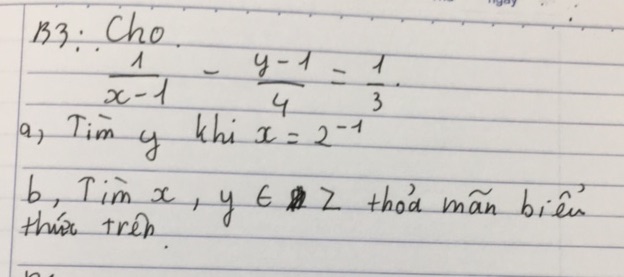 B3: Cho
1/(x-1) - (y-1)/4 = 1/3.
a, Tìm y khi x = 2^-1
b, Tìm x, y ∈ Z thoả mãn biểu
thức trên.